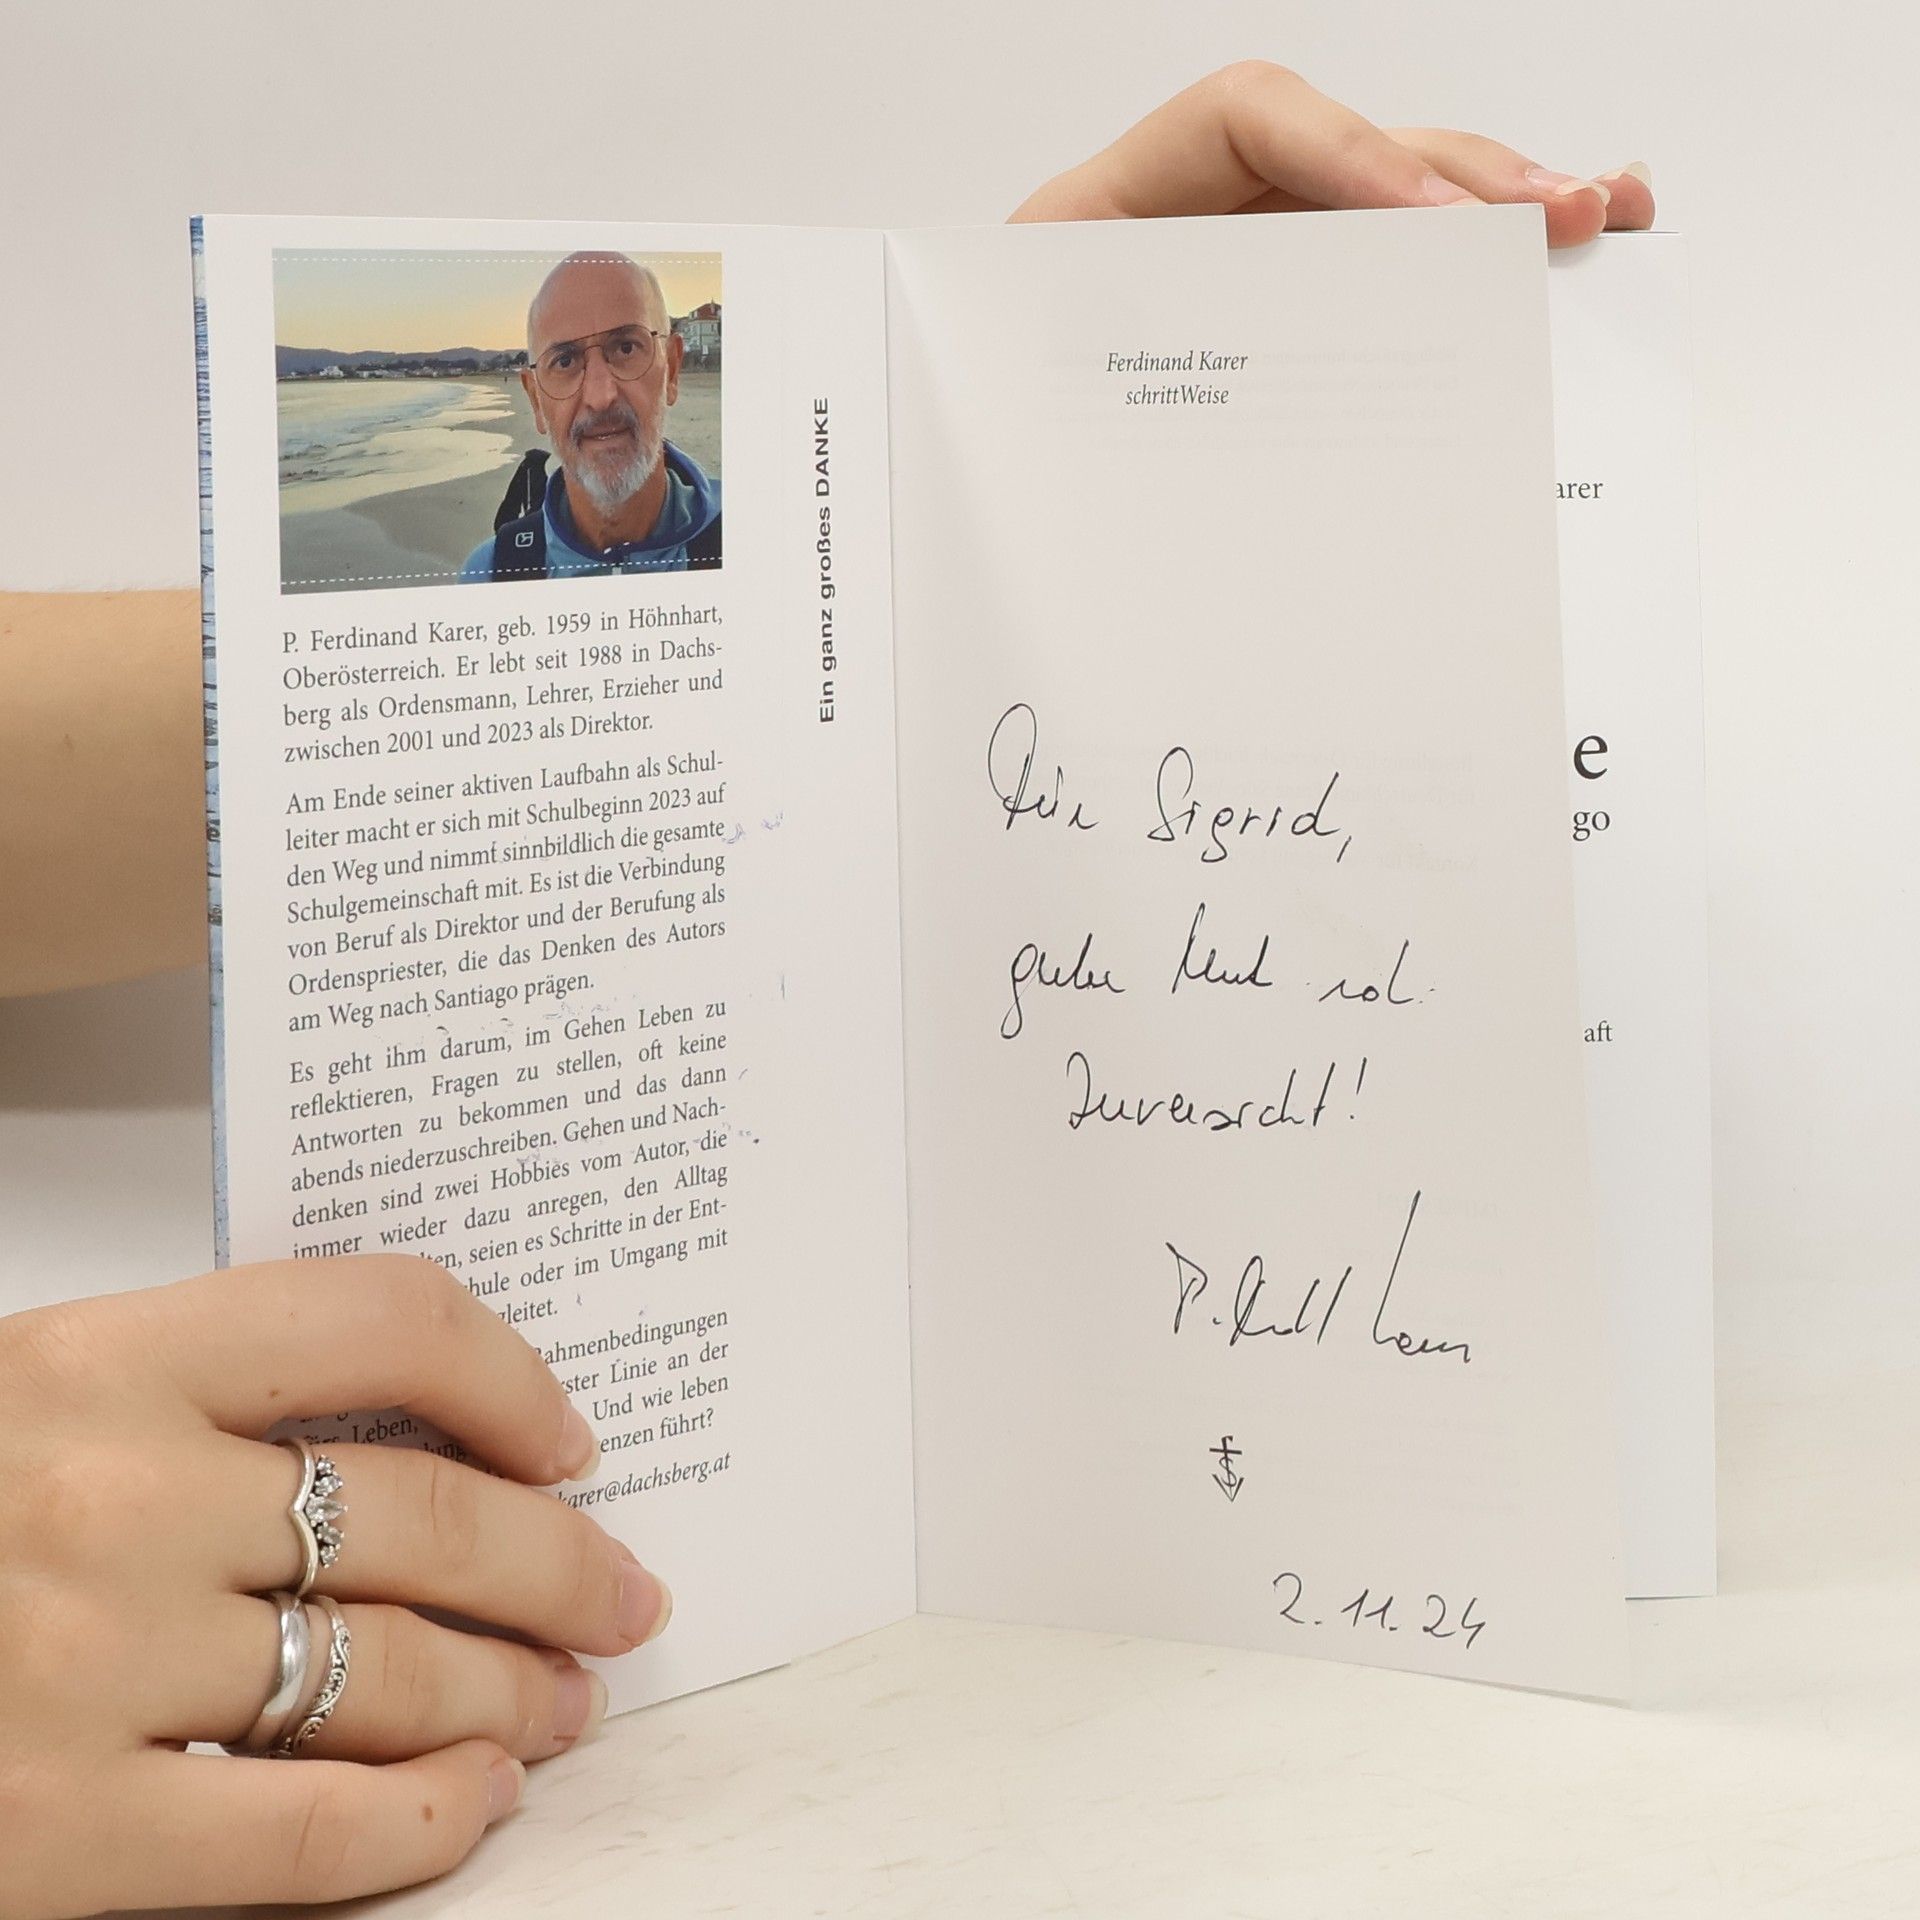 P. Ferdinand Karer, geb. 1959 in Höhnhart,
Oberösterreich. Er lebt seit 1988 in Dachs-
berg als Ordensmann, Lehrer, Erzieher und
zwischen 2001 und 2023 als Direktor.
Am Ende seiner aktiven Laufbahn als Schul-
leiter macht er sich mit Schulbeginn 2023 auf
den Weg und nimmt sinnbildlich die gesamte
Schulgemeinschaft mit. Es ist die Verbindung
von Beruf als Direktor und der Berufung als
Ordenspriester, die das Denken des Autors
am Weg nach Santiago prägen.
Es geht ihm darum, im Gehen Leben zu
reflektieren, Fragen zu stellen, oft keine
Antworten zu bekommen und das dann
abends niederzuschreiben. Gehen und Nach-
denken sind zwei Hobbies vom Autor, die
immer wieder dazu anregen, den Alltag
lten, seien es Schritte in der Ent-
hule oder im Umgang mit
gleitet.
ahmenbedingungen
rster Linie an der
Und wie leben
enzen führt?
Leben,
karer@dachsberg.at
Ein ganz großes DANKE
Ferdinand Karer
schrittWeise
Für Sigrid,
guten Mut und
Zuversicht!
P. Karer
2.11.24
arer
e
go
aft